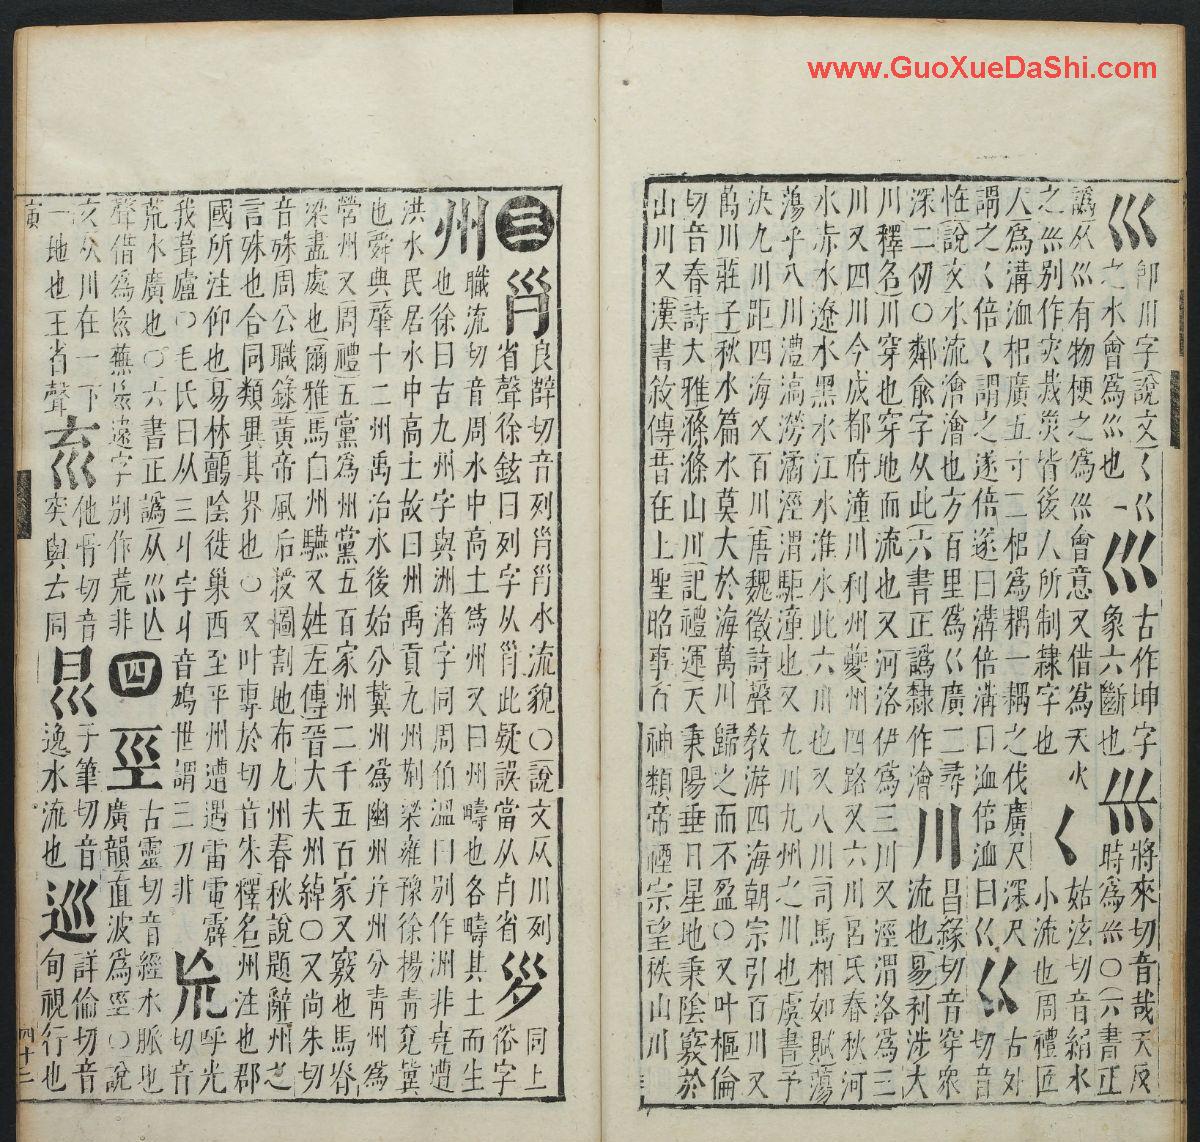 巛即川字說文𡿨巜巛之水會爲巛也一巛古作坤字象六斷也𡿧將來切音哉天反時爲𡿧〇六書正
譌从巛有物梗之爲𡿧會意又借爲天火之𡿧别作灾烖災皆後人所制隸字也𡿨姑泫切音絹水小流也周禮匠
人爲溝洫耜廣五寸二耜爲耦一耦之伐廣尺深尺謂之𡿨倍𡿨謂之遂倍遂曰溝倍溝曰洫倍洫曰巜巜古外切音
恠說文水流澮澮也方百里爲巜廣二尋深二仞〇鄰兪字从此六書正譌隸作澮川昌緣切音穿衆流也易利涉大
川釋名川穿也穿地而流也又河洛伊爲三川又涇渭洛爲三
川又四川今成都府潼川利州夔州四路又六川呂氏春秋河
水赤水遼水黑水江水淮水此六川也又八川司馬相如賦蕩
蕩乎八川灃滈澇潏涇渭駈潼也又九川九州之川也虞書予
決九川距四海又百川唐魏徵詩聲敎游四海朝宗引百川又
萬川莊子秋水篇水莫大於海萬川歸之而不盈〇又叶樞倫
切音春詩大雅滌滌山川記禮運天秉陽垂日星地秉陰竅於
山川又漢書敘傳昔在上聖昭事百神類帝禋宗望秩山川
三𡿪良辥切音列𡿪𡿪水流貌〇說文从川列省聲徐鉉曰列字从𡿪此疑誤當从歺省同上俗字
州職流切音周水中高土爲州又曰州疇也各疇其土而生也徐曰古九州字與洲渚字同周伯溫曰别作洲非堯遭
洪水民居水中高土故曰州禹貢九州荆梁雍豫徐揚靑兗冀
也舜典肇十二州禹治水後始分冀州爲幽州幷州分靑州爲
營州又周禮五黨爲州黨五百家州二千五百家又竅也馬脊
梁盡處也爾雅馬白州驠又姓左傳晉大夫州綽〇又尚朱切
音殊周公職錄黃帝風后授圖割地布九州春秋說題辭州之
言殊也合同類異其界也〇又叶專於切音朱釋名州注也郡
國所注仰也易林鸇陰徙巢西至平州遭遇雷電霹
我葺廬〇毛氏曰从三丩字丩音鳩世謂三刀非巟呼光切音
荒水廣也〇六書正譌从巛亾聲借爲蕪遠字别作荒非四巠古靈切音經水脈也廣韻直波爲巠〇說
文从川在一下一地也王省聲他骨切音突與𠫓同子筆切音逸水流也巡詳倫切音旬視行也
寅
四十二
www.GuoXueDaShi.com